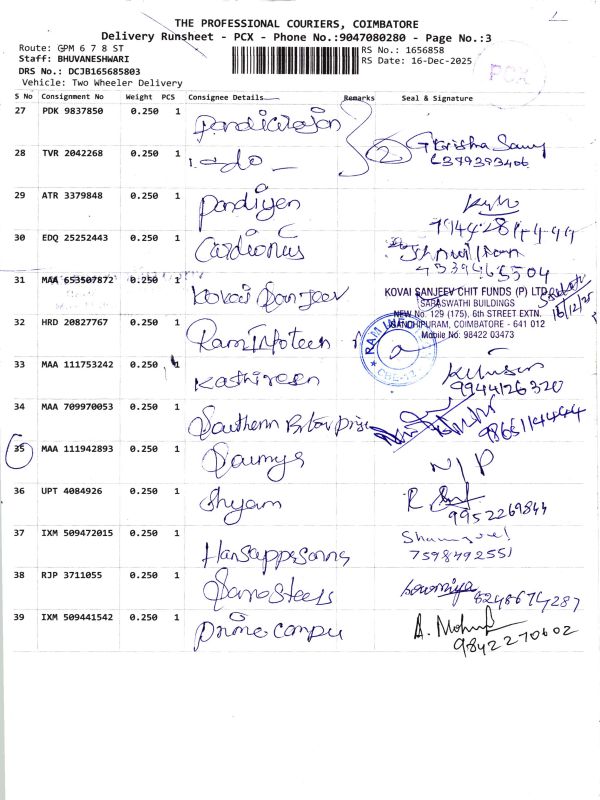 THE PROFESSIONAL COURIERS, COIMBATORE
Delivery Runsheet - PCX - Phone No.:9047080280 - Page No.:3
Route: GPM 6 7 8 ST
RS No.: 1656858
Staff: BHUVANESHWARI
RS Date: 16-Dec-2025
DRS No.: DCJB165685803
PCX
Vehicle: Two Wheeler Delivery
S No Consignment No Weight PCS Consignee Details Remarks Seal & Signature
27 PDK 9837850 0.250 1 Pandiarajan
28 TVR 2042268 0.250 1 -do- 2
29 ATR 3379848 0.250 1 Pandiyen
30 EDQ 25252443 0.250 1 Cardionus
31 MAA 653507872 0.250 1 Kovai Sanjeev
KOVAI SANJEEV CHIT FUNDS (P) LTD
SARASWATHI BUILDINGS
NEW No. 129 (175), 6th STREET EXTN.
GANDHIPURAM, COIMBATORE - 641 012
Mobile No: 98422 03473
16/12/25
32 HRD 20827767 0.250 1 Ram Infoteen
33 MAA 111753242 0.250 1 Kathiresen
9944126320
34 MAA 709970053 0.250 1 Southern
35 MAA 111942893 0.250 1 Soumya N/P
36 UPT 4084926 0.250 1 Shyam
9952269844
37 IXM 509472015 0.250 1
7598492551
38 RJP 3711055 0.250 1 Sano Steels Sowmiya
8248674287
39 IXM 509441542 0.250 1 Prime Compu A. Mohan
9842270602